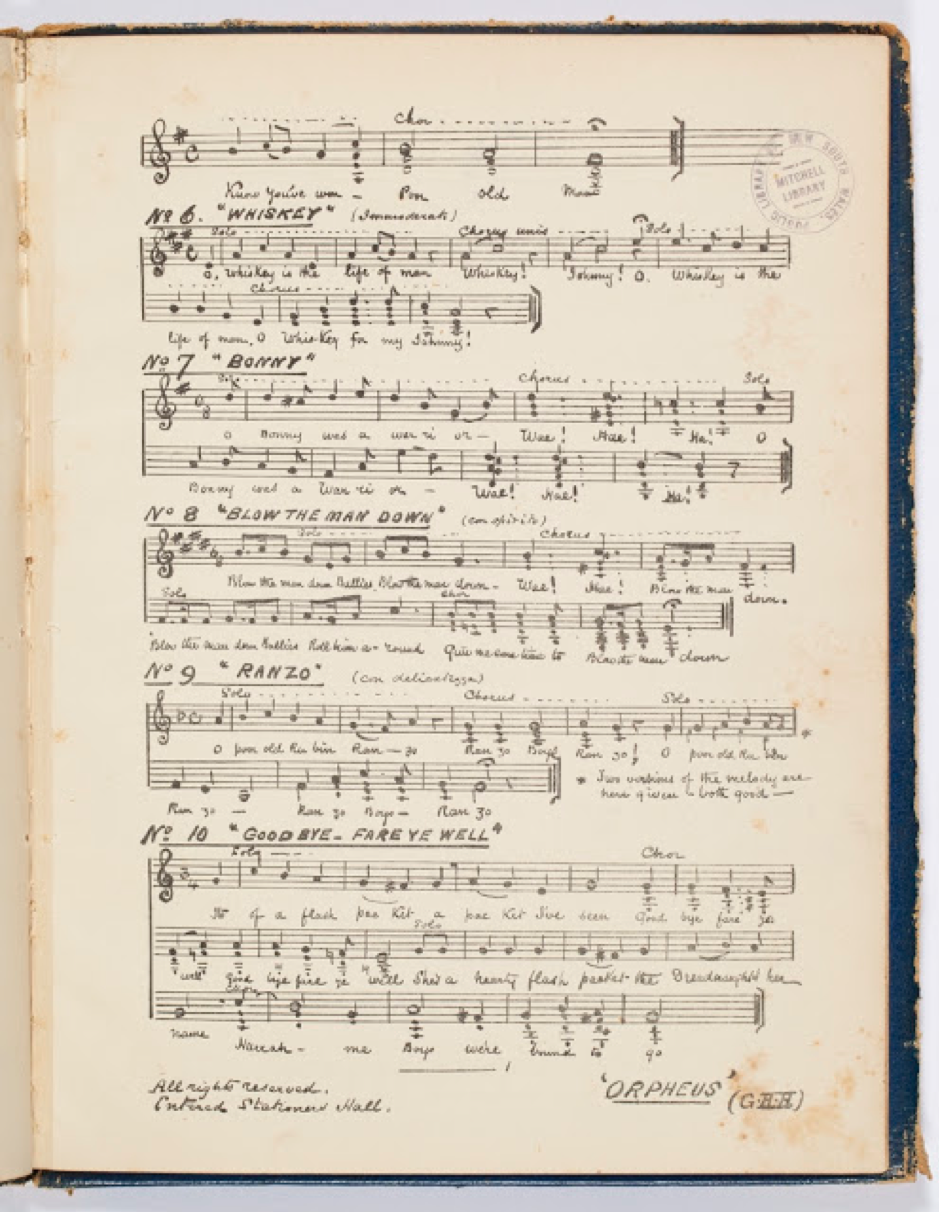 Chor
Know you've won - Poor old
PUBLIC LIBRARY NEW SOUTH WALES.
MITCHELL
LIBRARY
No 6. "WHISKEY" (Immoderato)
Solo Chorus unis Solo
O, whiskey is the life of man Whiskey! Johnny! O. Whiskey is the
Chorus
life of man, O Whis-key for my Johnny!
No 7 "BONNY"
Solo Chorus Solo
O Bonny was a war ri or - Wae! Hae! Ha! O
Bonny was a War ri or - Wae! Hae! Ha!
No 8 "BLOW THE MAN DOWN" (con spirito)
Solo Chorus
Blow the man down Bullies Blow the man down - Wae! Hae! Blow the man down.
Solo Chor
Blow the man down Bullies Roll him a-round Give me some time to Blow the man down
No 9 "RANZO" (con delicatezza)
Solo Chorus Solo
O poor old Reu bin Ran - zo Ran zo Boys Ran zo! O poor old Reu bin *
Ran zo - Ran zo Boys - Ran zo
* Two versions of the melody are
here given - both good -
No 10 "GOOD BYE - FARE YE WELL"
Solo Chor
of a flash pac Kit a pac Kit I've been Good bye fare ye
Solo
well Good bye fare ye well She's a hearty flash packet the Dreadnaught her
Chorus
name Hurrah - me Boys we're bound to go
All rights reserved.
Entered Stationers Hall.
"ORPHEUS" (G.H.H)